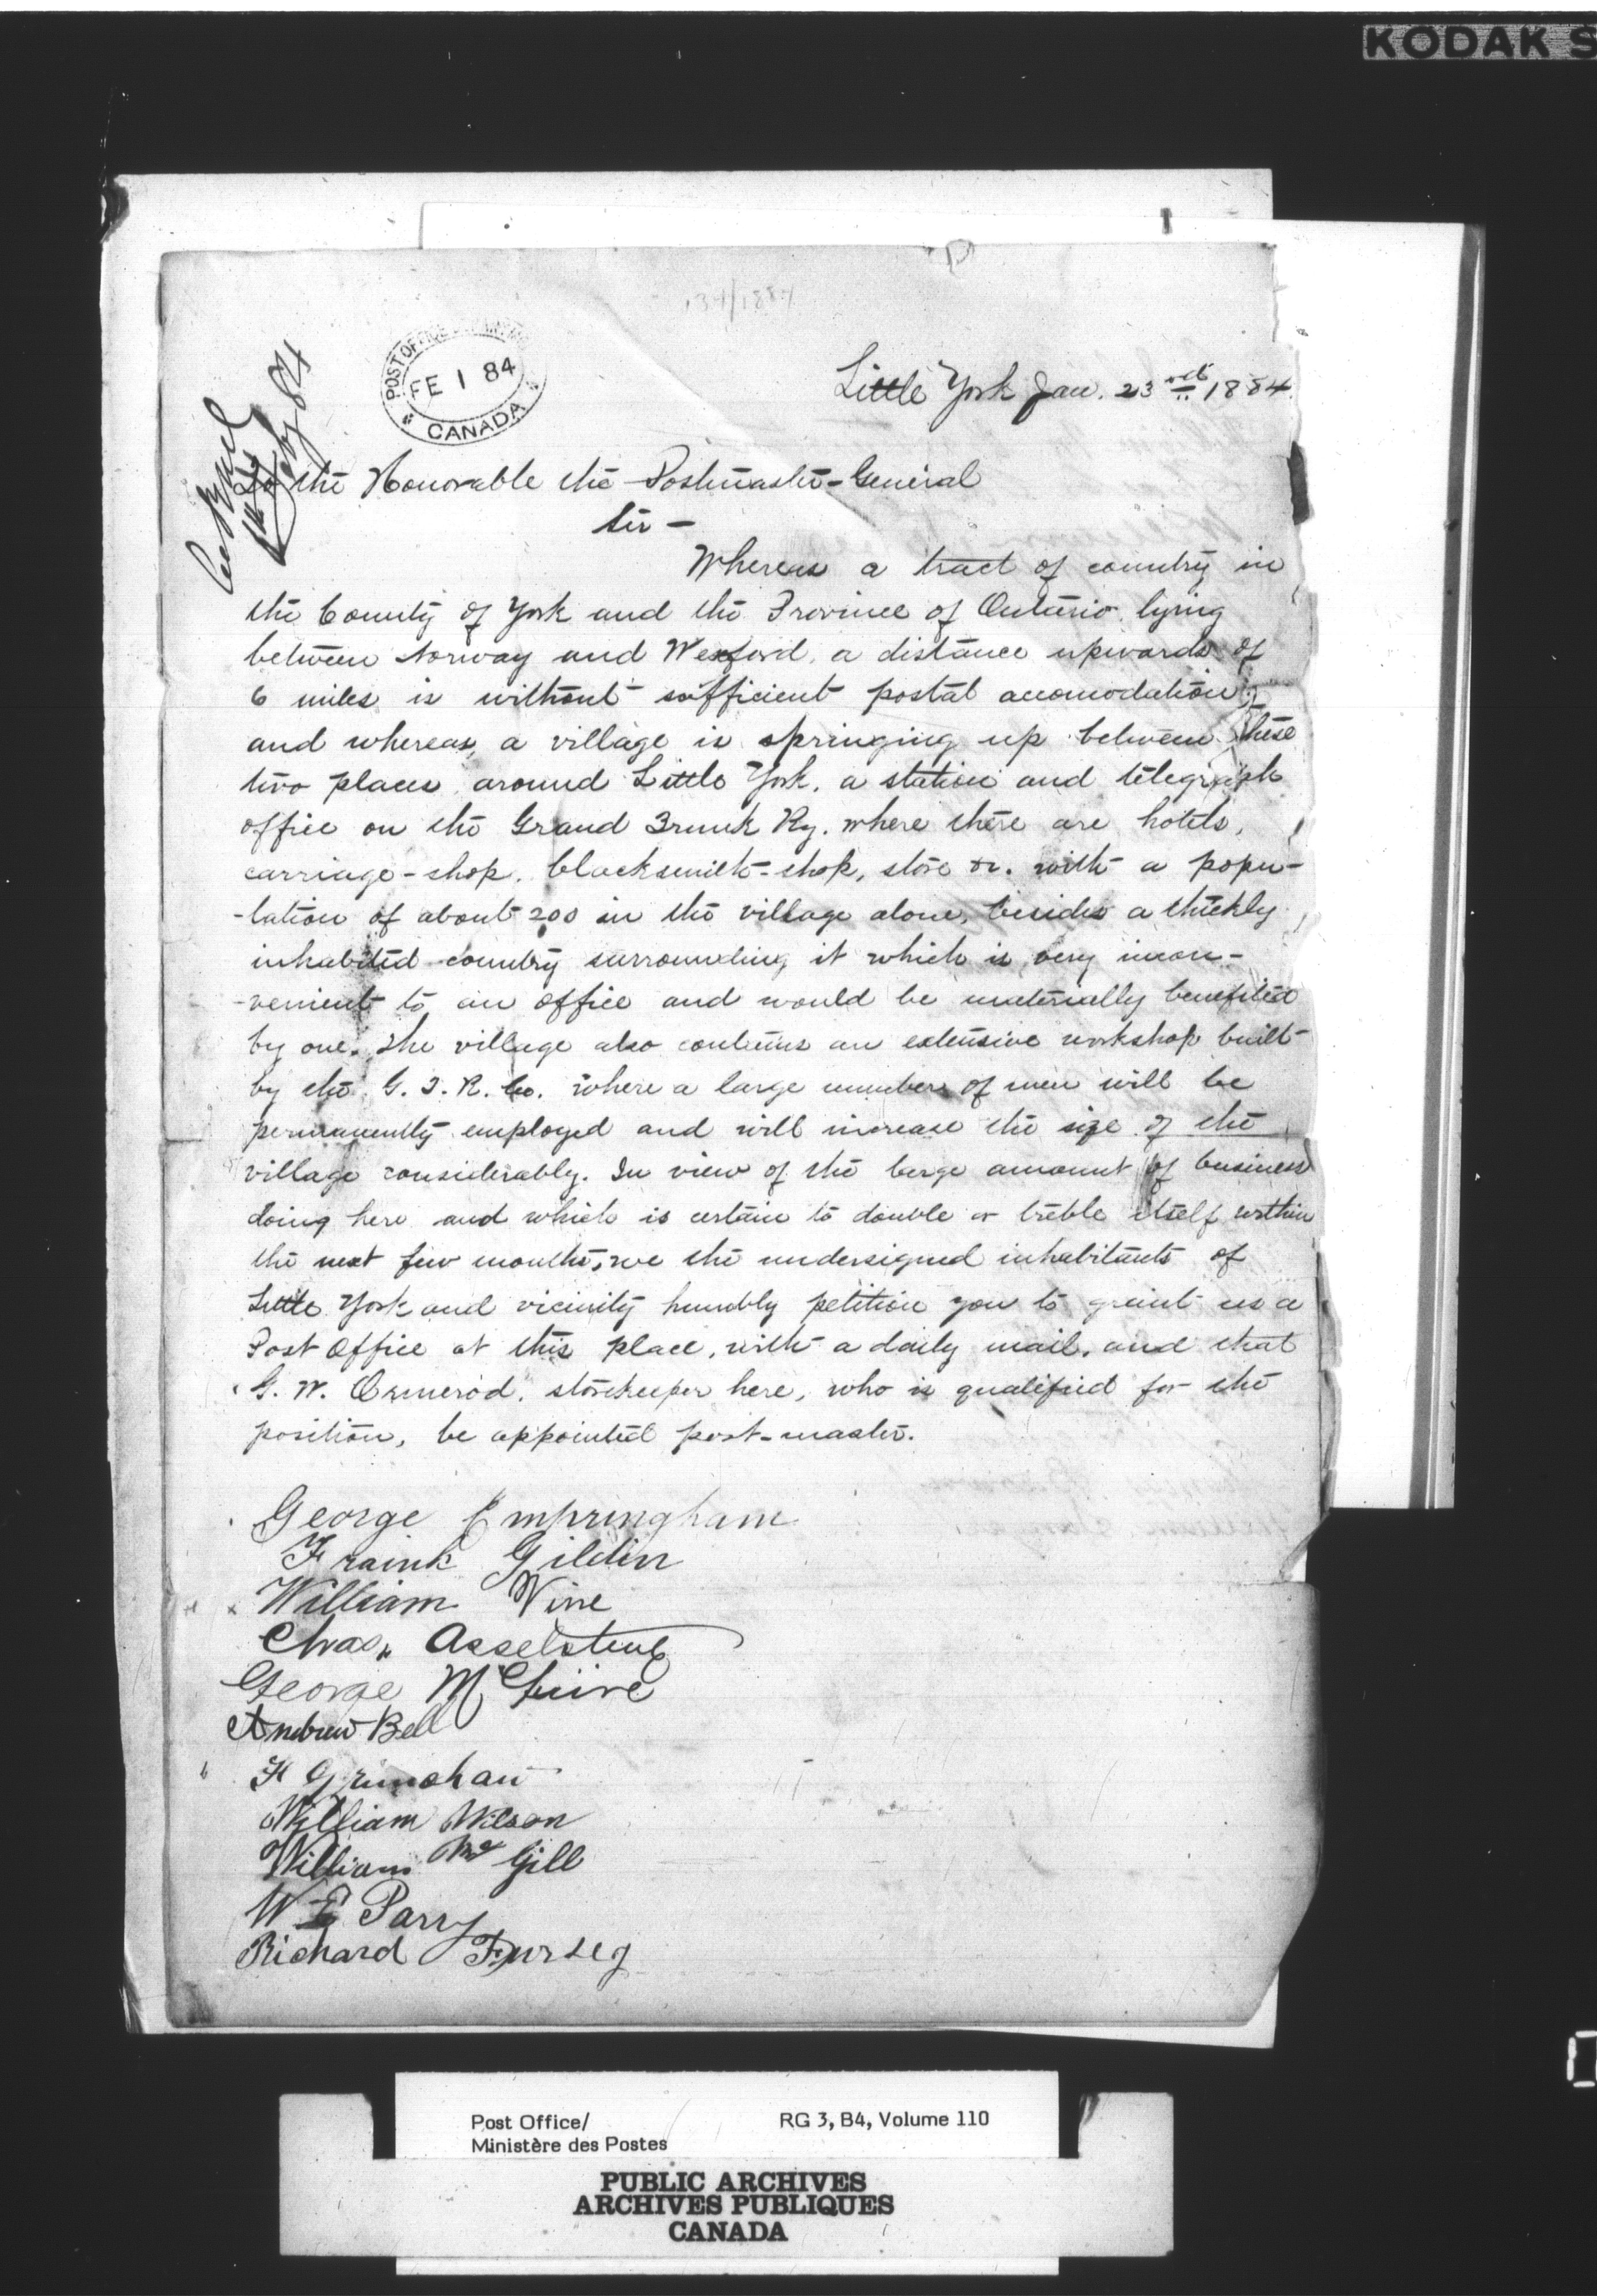 KODAK S
134/1884
POST OFFICE
FE 1 84
CANADA
Little York Jan. 23rd 1884.
To the Honorable the Postmaster-General
Sir —
Whereas a tract of country in
the County of York and the Province of Ontario lying
between Norway and Wexford, a distance upwards of
6 miles is without sufficient postal accomodation;
and whereas, a village is springing up between these
two places around Little York, a station and telegraph
office on the Grand Trunk Ry. where there are hotels,
carriage-shop, blacksmith-shop, store &c. with a popu-
-lation of about 200 in the village alone, besides a thickly
inhabited country surrounding it which is very incon-
-venient to an office and would be materially benefited
by one. The village also contains an extensive workshop built
by the G. T. R. Co. where a large number of men will be
permanently employed and will increase the size of the
village considerably. In view of the large amount of business
doing here and which is certain to double or treble itself within
the next few months, we the undersigned inhabitants of
Little York and vicinity humbly petition you to graint us a
Post Office at this place, with a daily mail, and that
G. W. Ormerod, storekeeper here, who is qualified for the
position, be appointed post-master.
George Empringham
Frank Gildin
William Vine
Chas. Asselstine
George McGuire
Andrew Bell
F Grimshaw
William Wilson
William Mc Gill
W E Parry
Richard Fursey
Post Office/
Ministère des Postes
RG 3, B4, Volume 110
PUBLIC ARCHIVES
ARCHIVES PUBLIQUES
CANADA